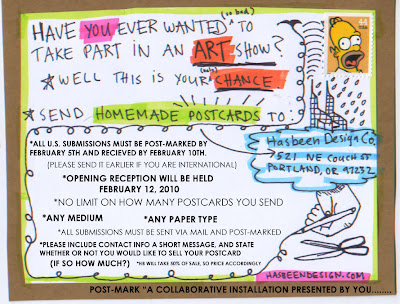 (so bad)
HAVE YOU EVER WANTED TO
TAKE PART IN AN ART SHOW?
44
(only)
*WELL THIS IS YOUR CHANCE.
*SEND HOMEMADE POSTCARDS TO:
Hasbeen Design Co.
521 NE COUCH ST
PORTLAND, OR 97232
*ALL U.S. SUBMISSIONS MUST BE POST-MARKED BY
FEBRUARY 5TH AND RECIEVED BY FEBRUARY 10TH.
(PLEASE SEND IT EARLIER IF YOU ARE INTERNATIONAL)
*OPENING RECEPTION WILL BE HELD
FEBRUARY 12, 2010
*NO LIMIT ON HOW MANY POSTCARDS YOU SEND
*ANY MEDIUM *ANY PAPER TYPE
*ALL SUBMISSIONS MUST BE SENT VIA MAIL AND POST-MARKED
*PLEASE INCLUDE CONTACT INFO A SHORT MESSAGE, AND STATE
WHETHER OR NOT YOU WOULD LIKE TO SELL YOUR POSTCARD
(IF SO HOW MUCH?) *WE WILL TAKE 50% OF SALE, SO PRICE ACCORDINGLY
HASBEENDESIGN.COM
POST-MARK "A COLLABORATIVE INSTALLATION PRESENTED BY YOU........